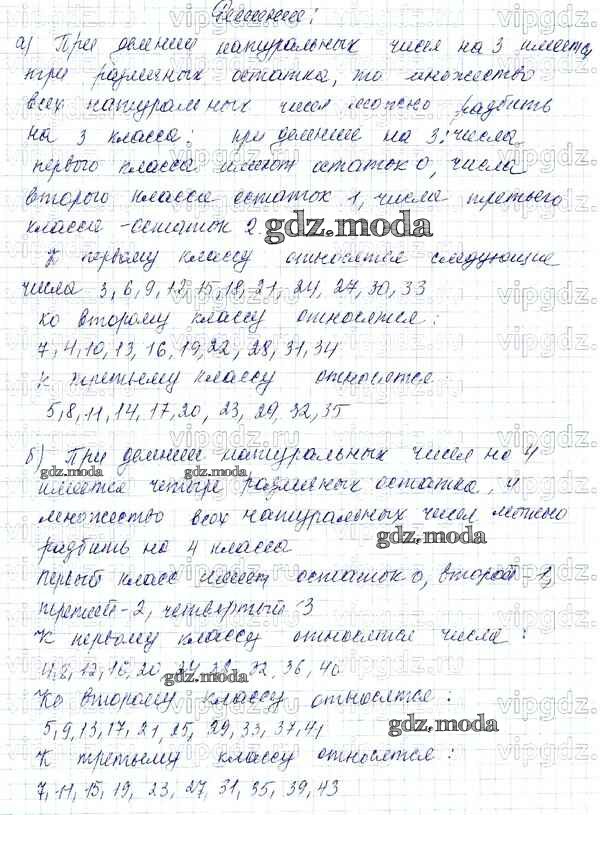 Решение:
а) При делении натуральных чисел на 3 имеется
три различных остатка, то множество
всех натуральных чисел можно разбить
на 3 класса: при делении на 3: числа
первого класса имеют остаток 0, числа
второго класса остаток 1, числа третьего
класса - остаток 2.
gdz.moda
К первому классу относятся следующие
числа 3, 6, 9, 12, 15, 18, 21, 24, 27, 30, 33
ко второму классу относятся:
7, 4, 10, 13, 16, 19, 22, 28, 31, 34
к третьему классу относятся
5, 8, 11, 14, 17, 20, 23, 29, 32, 35
б) При делении натуральных чисел на 4
gdz.moda
имеется четыре различных остатка, и
множество всех натуральных чисел можно
разбить на 4 класса
gdz.moda
первый класс имеет остаток 0, второй - 1,
третий - 2, четвертый 3
К первому классу относятся числа:
4, 8, 12, 16, 20, 24, 28, 32, 36, 40
gdz.moda
Ко второму классу относятся:
5, 9, 13, 17, 21, 25, 29, 33, 37, 41
gdz.moda
К третьему классу относятся:
7, 11, 15, 19, 23, 27, 31, 35, 39, 43
vipgdz.